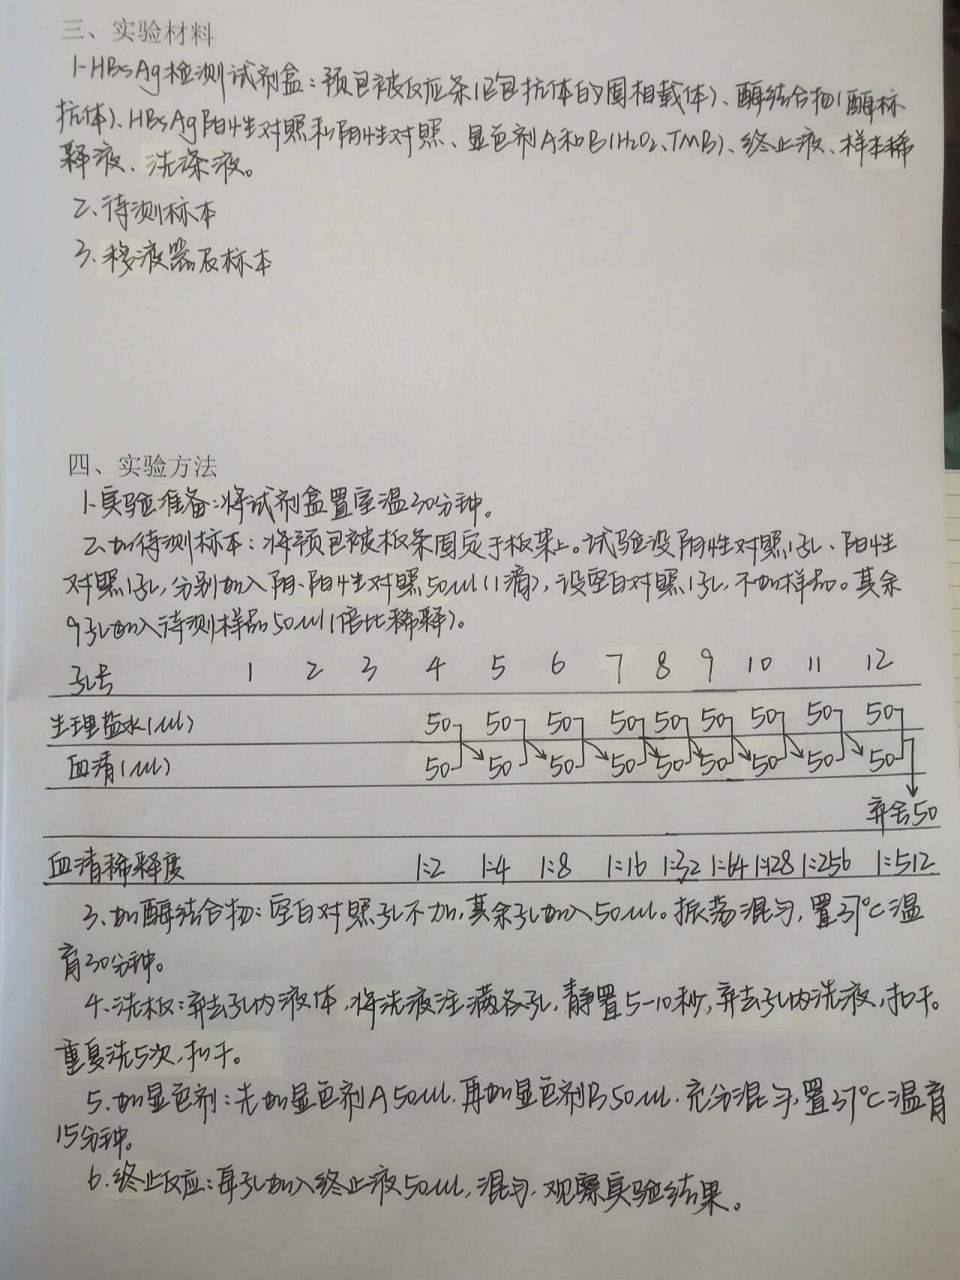 三、实验材料
1.HBsAg检测试剂盒：预包被反应条(已包抗体的固相载体)、酶结合物(酶标
抗体)、HBsAg阳性对照和阴性对照、显色剂A和B(H2O2、TMB)、终止液、样本稀
释液、洗涤液。
2、待测标本
3.移液器及标本
四、实验方法
1.实验准备：将试剂盒置室温30分钟。
2.加待测标本：将预包被板条固定于板架上。试验设阴性对照1孔、阳性
对照1孔，分别加入阴、阳性对照50ul(1滴)，设空白对照1孔，不加样品。其余
9孔加入待测样品50ul(倍比稀释)。
孔号 1 2 3 4 5 6 7 8 9 10 11 12
生理盐水(ul) 50 50 50 50 50 50 50 50 50
血清(ul) 50 50 50 50 50 50 50 50 50
弃去50
血清稀释度 1:2 1:4 1:8 1:16 1:32 1:64 1:128 1:256 1:512
3.加酶结合物：空白对照孔不加，其余孔加入50ul。振荡混匀，置37℃温
育30分钟。
4.洗板：弃去孔内液体，将洗液注满各孔，静置5-10秒，弃去孔内洗液，扣干。
重复洗5次，扣干。
5.加显色剂：先加显色剂A50ul，再加显色剂B50ul，充分混匀，置37℃温育
15分钟。
6.终止反应：每孔加入终止液50ul，混匀，观察实验结果。